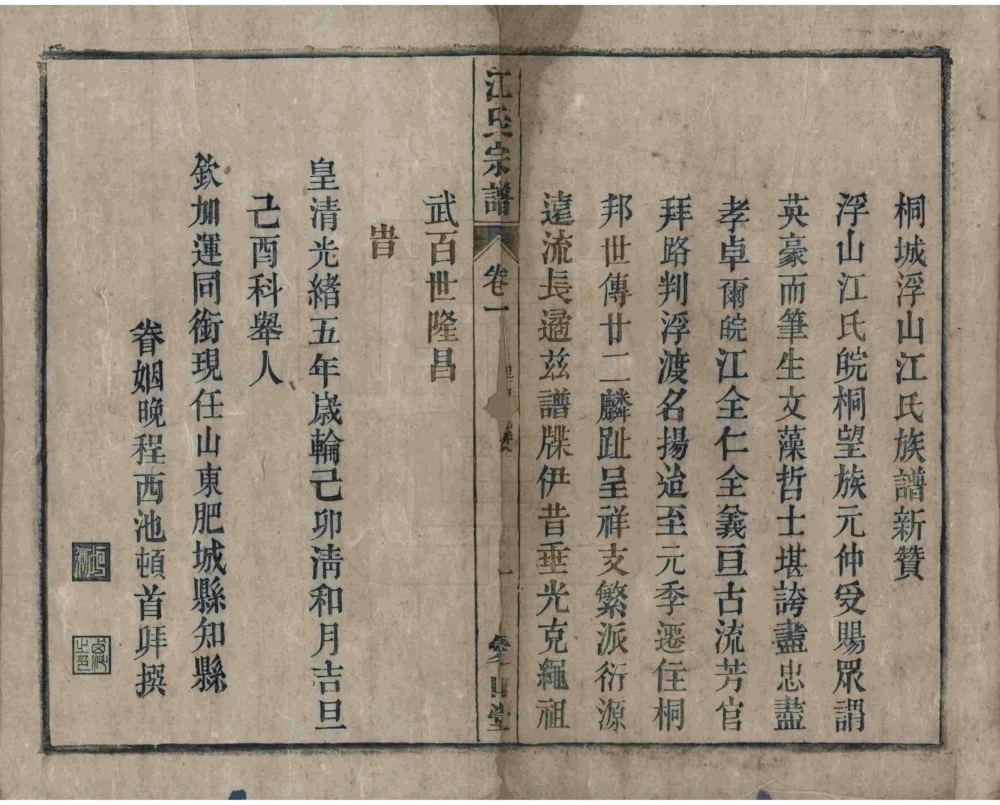 桐城浮山江氏族譜新贊
浮山江氏皖桐望族元仲受賜眾謂
英豪而筆生文藻哲士堪誇盡忠盡
孝卓爾皖江全仁全義亘古流芳官
拜路判浮渡名揚迨至元季遷住桐
邦世傳廿二麟趾呈祥支繁派衍源
遠流長遹茲譜牒伊昔垂光克繩祖
江氏宗譜
卷一
一
堂
武百世隆昌
旹
皇清光緒五年歲輪己卯清和月吉旦
己酉科舉人
欽加運同銜現任山東肥城縣知縣
眷姻晚程西池頓首拜撰